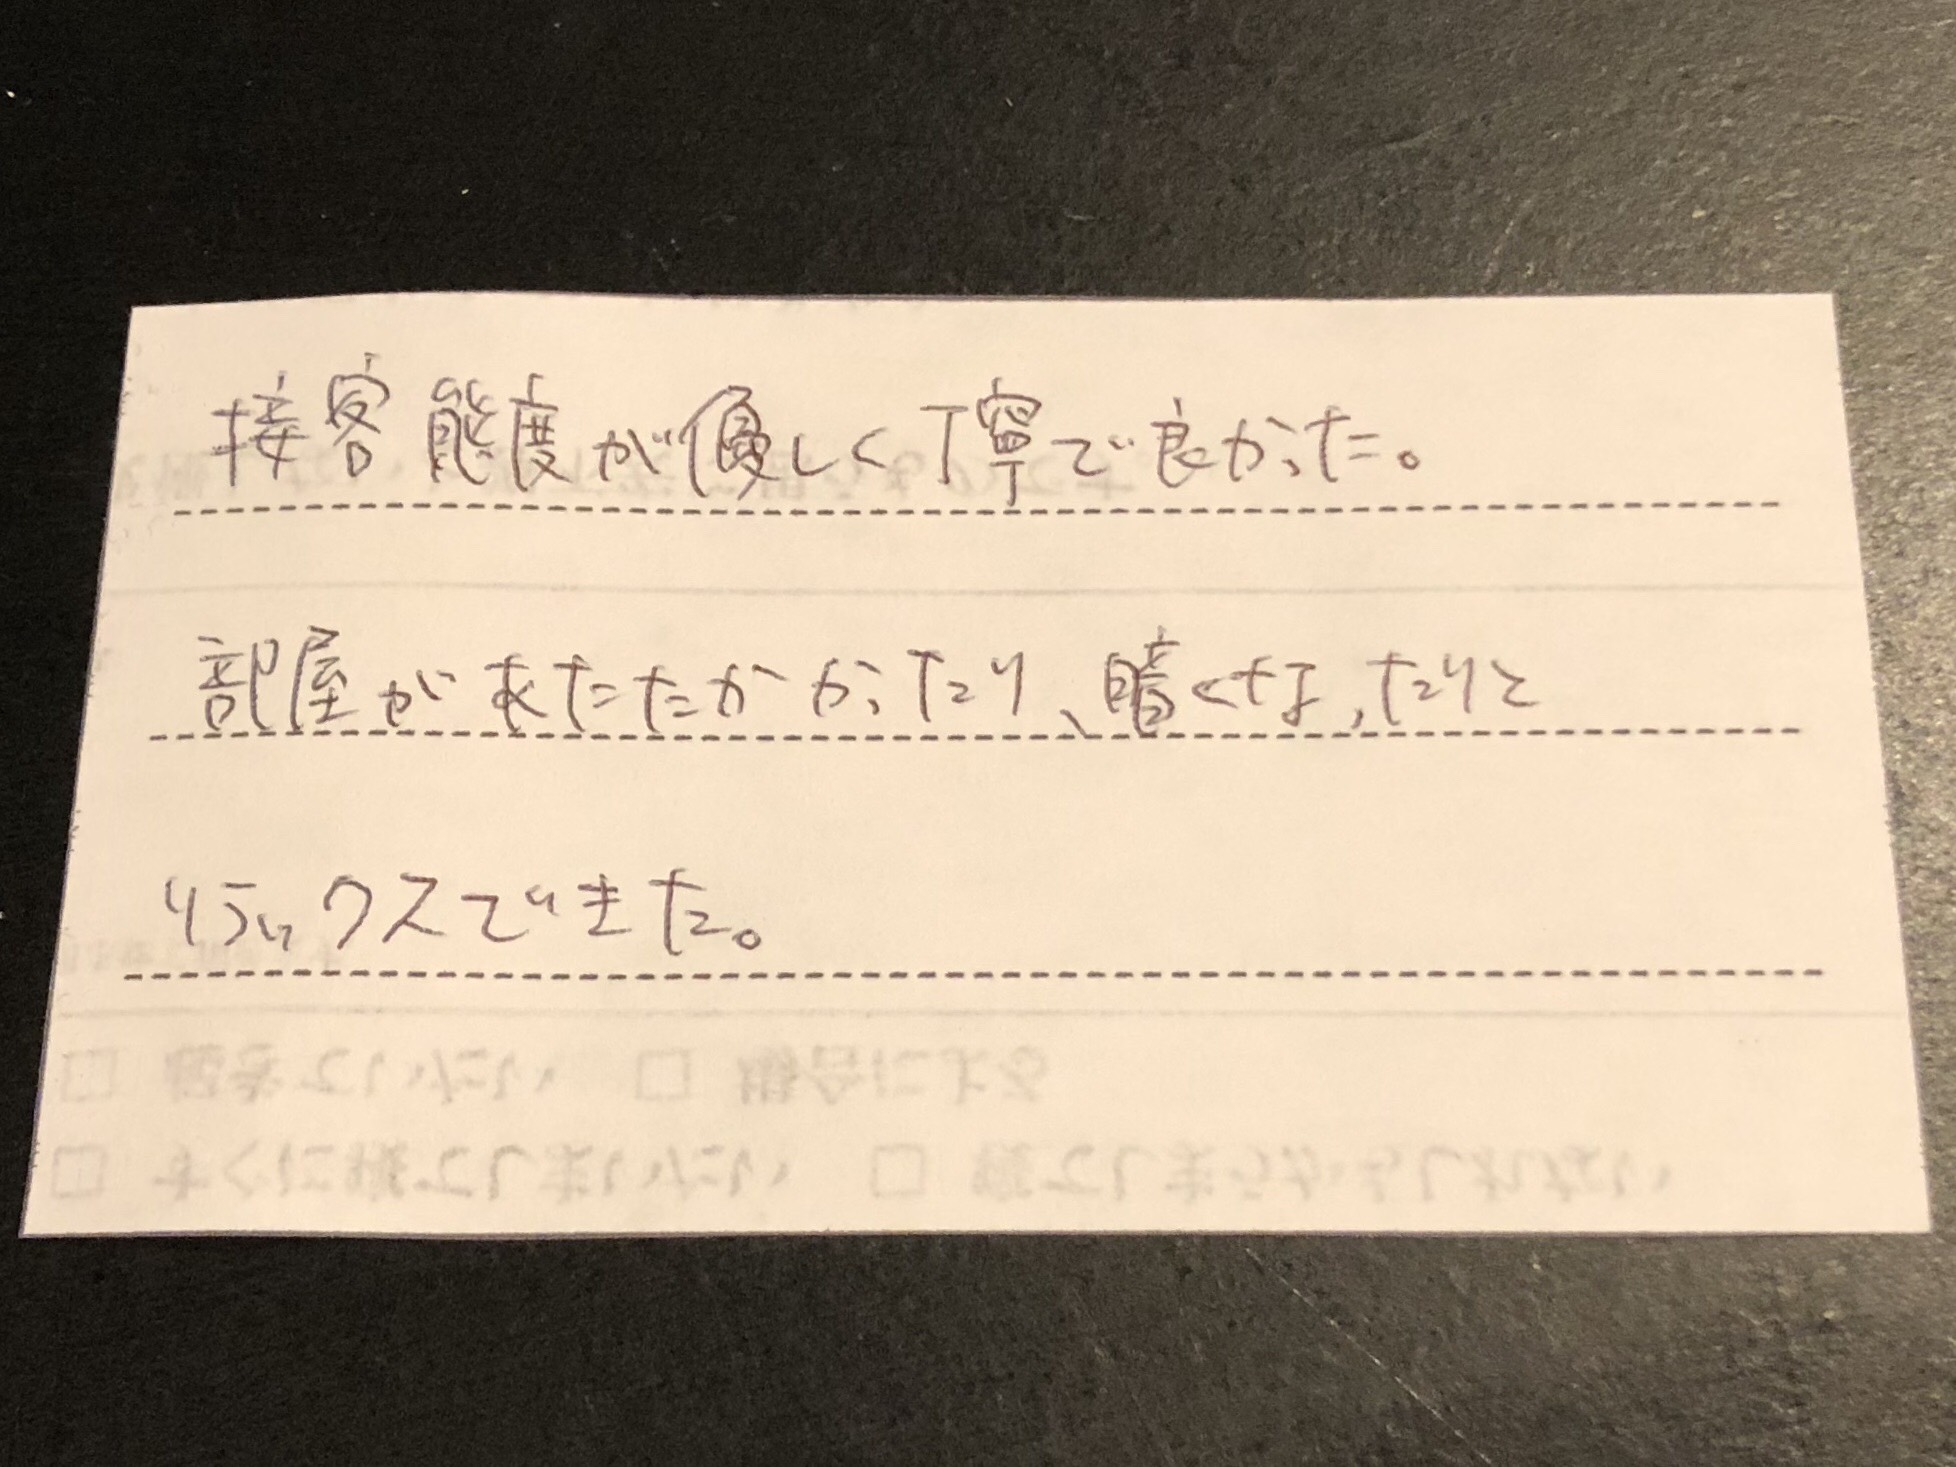 接客態度が優しく丁寧で良かった。
部屋があたたかかったり、暗くなったりと
リラックスできた。